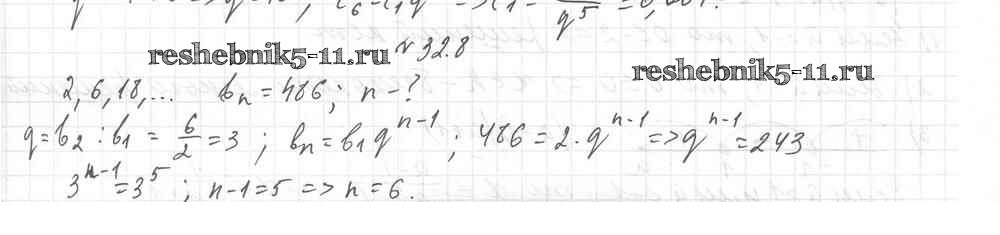 reshebnik5-11.ru
№32.8
reshebnik5-11.ru
2, 6, 18, ... bₙ = 486; n - ?
q = b₂ : b₁ = 6/2 = 3 ; bₙ = b₁qⁿ⁻¹ ; 486 = 2 · qⁿ⁻¹ => qⁿ⁻¹ = 243
3ⁿ⁻¹ = 3⁵ ; n-1 = 5 => n = 6.